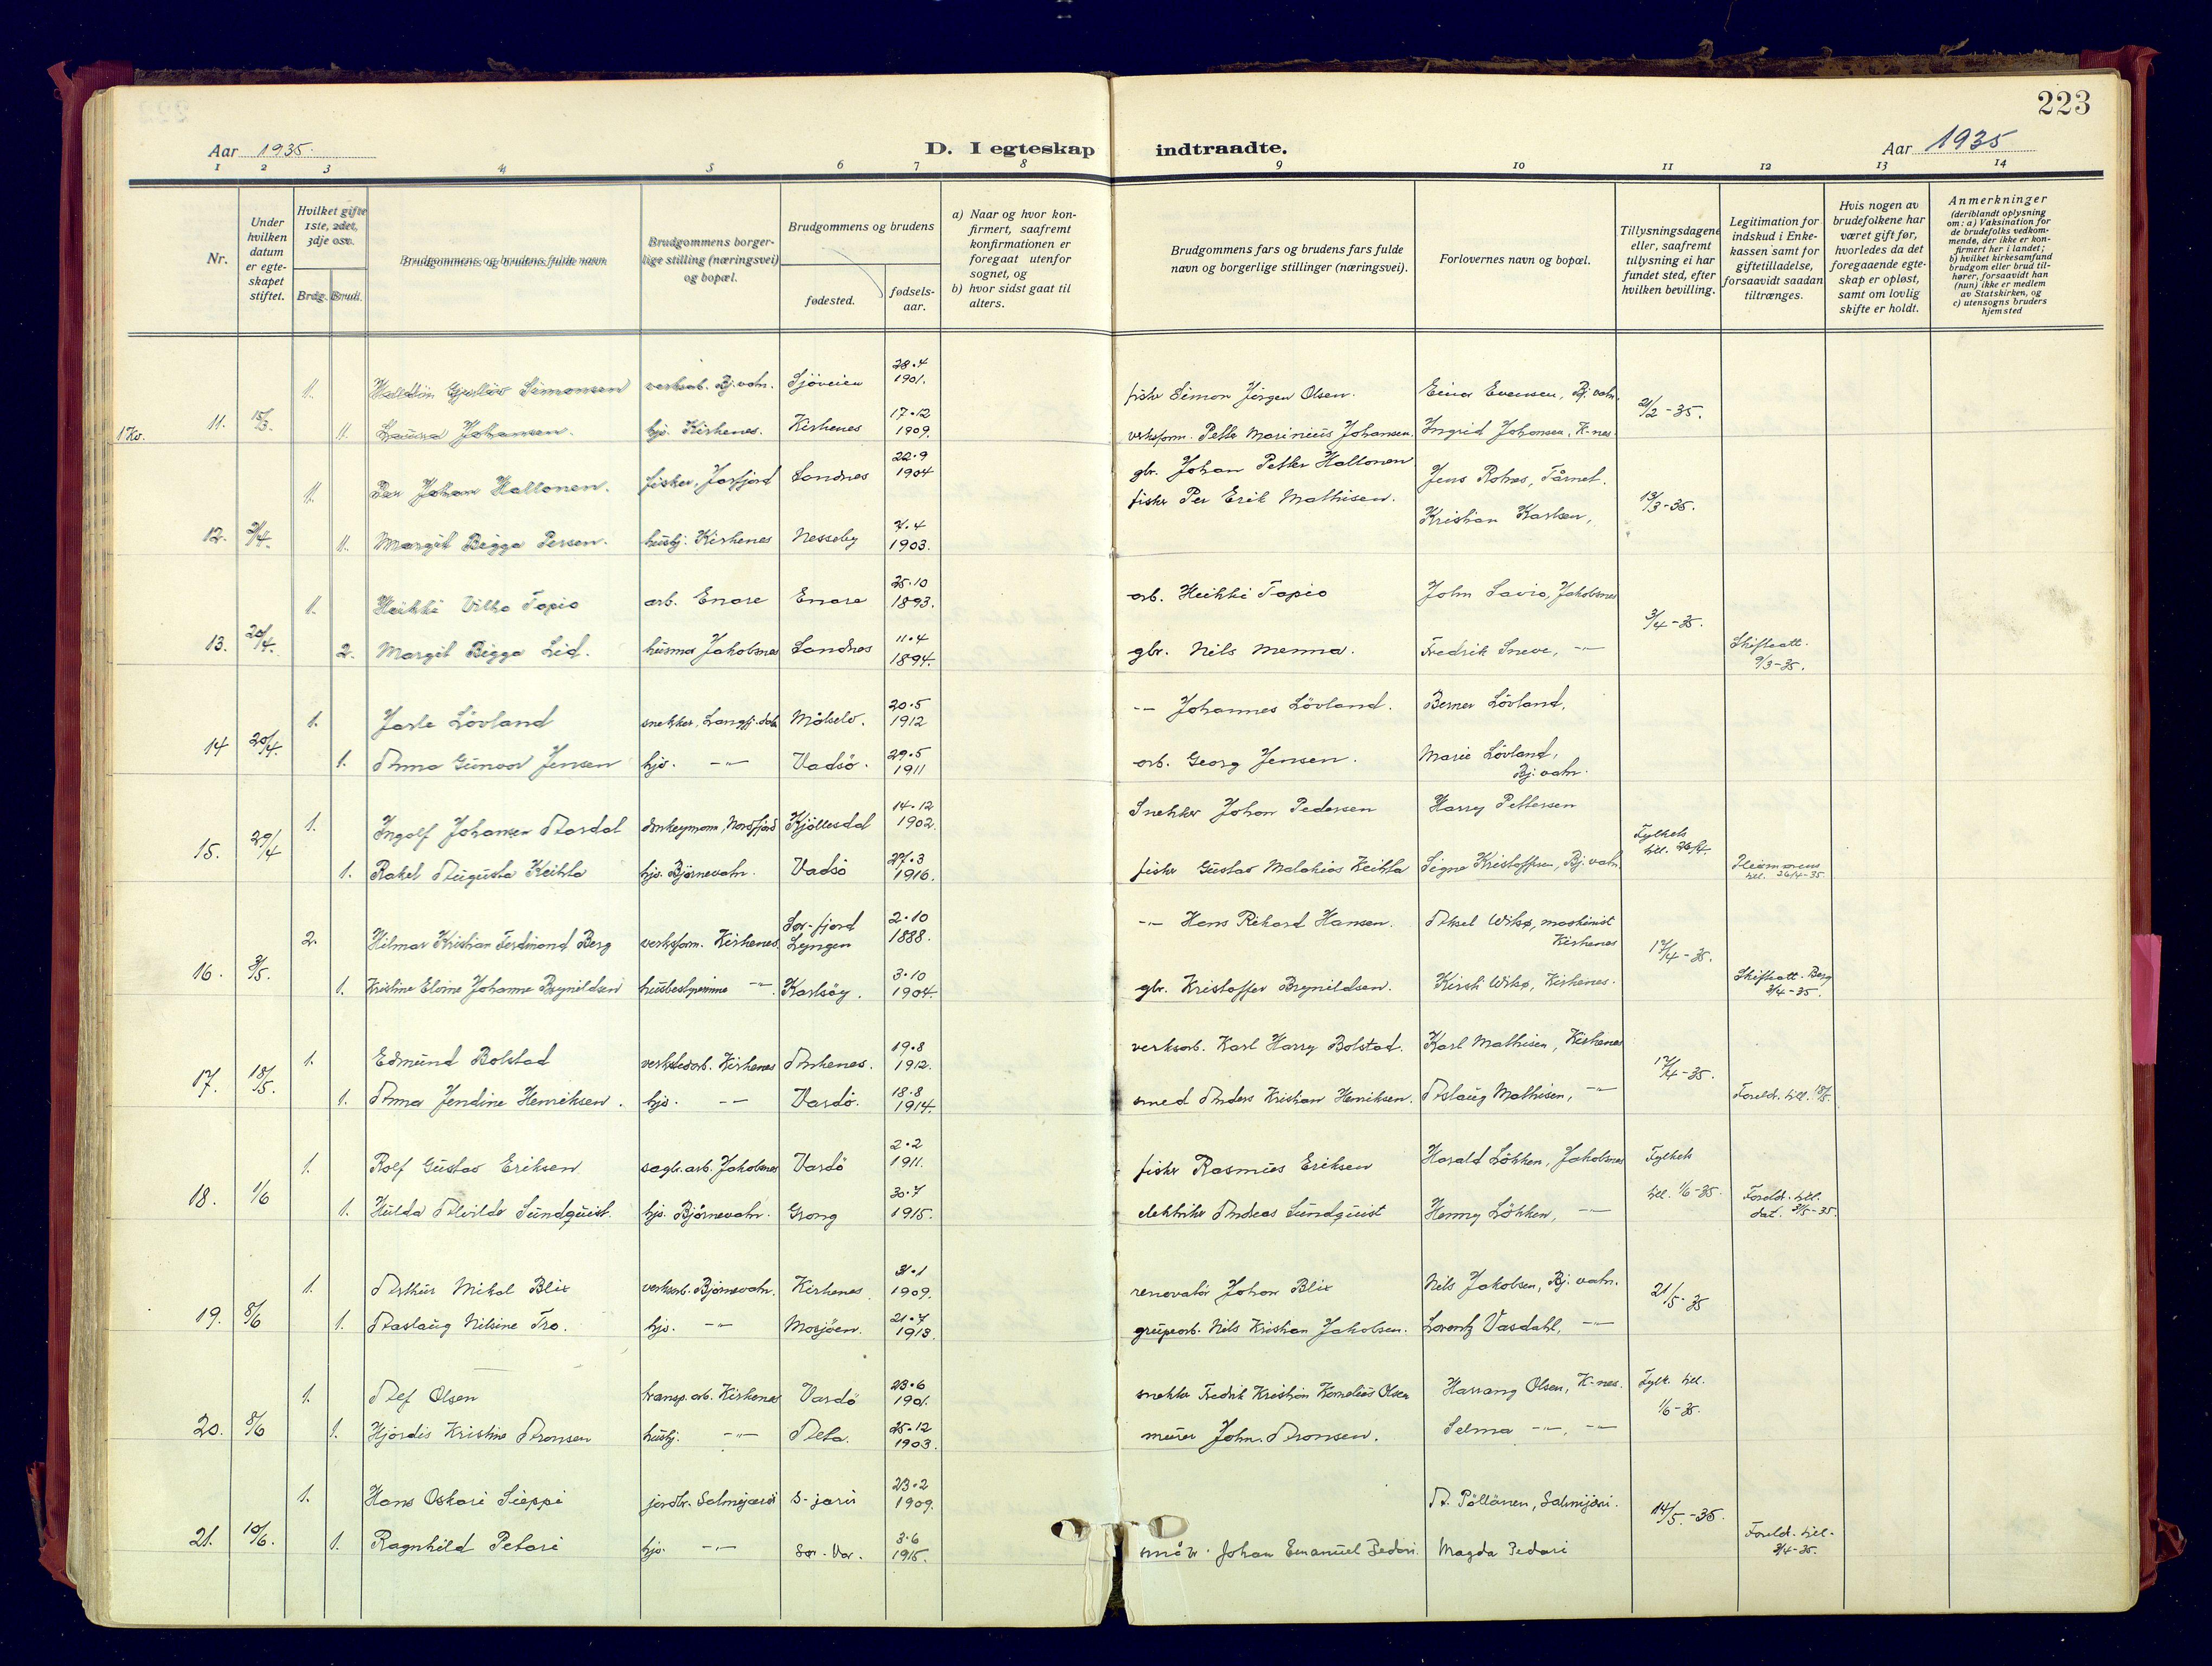 223
Aar 1935.
D. I egteskap indtraadte.
Aar 1935
1 2 3 4 5 6 7 8 9 10 11 12 13 14
Nr.
Under hvilken datum er egteskapet stiftet.
Hvilket gifte 1ste, 2det, 3dje osv.
Brdg. Brud.
Brudgommens og brudens fulde navn
Brudgommens borgerlige stilling (næringsvei) og bopæl.
Brudgommens og brudens
fødested.
fødselsaar.
a) Naar og hvor konfirmert, saafremt konfirmationen er foregaat utenfor sognet, og
b) hvor sidst gaat til alters.
Brudgommens fars og brudens fars fulde navn og borgerlige stillinger (næringsvei).
Forlovernes navn og bopæl.
Tillysningsdagene eller, saafremt tillysning ei har fundet sted, efter hvilken bevilling.
Legitimation for indskud i Enkekassen samt for giftetilladelse, forsaavidt saadan tiltrænges.
Hvis nogen av brudefolkene har været gift før, hvorledes da det foregaaende egteskap er opløst, samt om lovlig skifte er holdt.
Anmerkninger (deriblandt oplysning om: a) Vaksination for de brudefolks vedkommende, der ikke er konfirmert her i landet; b) hvilket kirkesamfund brudgom eller brud tilhører, forsaavidt han (hun) ikke er medlem av Statskirken, og c) utensogns bruders hjemsted
1. Simonsen verksarb. Bj.vatn. Sjöveien 28.4 1901. fisker Simon Jörgen Olsen. Einar Evensen, Bj.vatn.
1 Kv. 11. 15/3. 1. Johansen. hjv. Kirkenes. Kirkenes 17.12 1909. verksform. Petter Marinius Johansen. Ingrid Johansen, K-nes. 21/2-35.
1. Per Johan Hallonen. fisker, Jarfjord Sandnes 22.9 1904 gbr. Johan Petter Hallonen Jens Rotnes, Tårnet.
12. 21/4. 1. Margit Bigga Persen. husbj. Kirkenes Nesseby 7.4 1903. fisker Per Erik Mathisen. Kristian Karlsen, 13/3-35.
1. Heikki Vilho Tapio arb. Enare Enare 25.10 1893. arb. Heikki Tapio John Savio, Jakobsnes
13. 20/4. 2. Margit Bigga Lid. husmor Jakobsnes Sandnes 11.4 1894. gbr. Nils Menna. Fredrik Sneve, -"- 3/4-35. Skifteatt. 9/3-35.
1. Jarle Lövland snekker, Langfj.dal Målselv. 20.5 1912 -"- Johannes Lövland. Berner Lövland,
14 20/4. 1. Anna Gunvor Jensen hjv. -"- Vadsö. 29.5 1911 arb. Georg Jensen. Marie Lövland, Bj.vatn.
1. Ingolf Johansen Aardal donkeymann, Nordfjord Kjöllesdal 14.12 1902. Snekker Johan Pedersen Harry Pettersen
15. 29/4 1. Rakel Augusta Keihta hjv. Björnevatn. Vadsö 27.3 1916. fisker Gustav Malakias Keihta Signe Kristoffersen, Bj.vatn Fylkets till. 26/4. till. 26/4-35
2. Hilmar Kristian Ferdinand Berg verksform. Kirkenes. Sör-fjord Lyngen 2.10 1888. -"- Hans Rikard Hansen. Aksel Wikø, maskinist Kirkenes
16. 3/5. 1. Kristine Elvine Johanne Brynildsen husbestyrerinne -"- Karlsöy. 3.10 1904. gbr. Kristoffer Brynildsen. Kirsti Wikø, Kirkenes. 17/4-35. Skifteatt. Berg 3/4-35.
1. Edmund Bolstad verkstedarb. Kirkenes Kirkenes. 19.8 1912. verksarb. Karl Harry Bolstad. Karl Mathisen, Kirkenes
17. 18/5. 1. Anna Jendine Henriksen. hjv. -"- Vardö. 18.8 1914. smed Anders Kristian Henriksen. Aslaug Mathisen, -"- 17/4-35. Foreldr. till. 18/5.
1. Rolf Gustav Eriksen sagbr.arb. Jakobsnes Vardö 2.2 1911. fisker Rasmus Eriksen Harald Lökken, Jakobsnes Fylkets
18. 1/6 1. Hulda Alvilde Sundquist. hjv. Björnevatn. Grong 30.7 1915. elektriker Andreas Sundquist Henny Lökken, -"- till. 1/6-35. Foreldr. till. dat. 31/5-35.
1. Arthur Mikal Blix verksarb. Björnevatn. Kirkenes. 31.1 1909. renovatör Johan Blix Nils Jakobsen, Bj.vatn.
19. 8/6 1. Aaslaug Nilsine Tro. hjv. -"- Mosjöen. 21.7 1913. gruvearb. Nils Kristian Jakobsen. Lorentz Vasdahl, -"- 21/5-35
1. Alf Olsen transp.arb. Kirkenes Vardö 23.6 1901. snekker Fredrik Kristian Kornelius Olsen Harrang Olsen, K-nes. Fylk. till. 1/6-35.
20. 8/6 1. Hjördis Kristine Aronsen husbj. -"- Alta. 25.12 1903. murer John Aronsen. Selma -"-, -"-
1. Hans Oskari Sieppi jordbr. Salmijærvi S-jarvi 23.2 1909. A. Pöllänen, Salmijärvi.
21. 10/6. 1. Ragnhild Petari hjv. -"- Sør-Var. 3.6 1915. småbr. Johan Emanuel Pedari. Magda Pedari 14/5-35. Foreldr. till. 3/4-35.